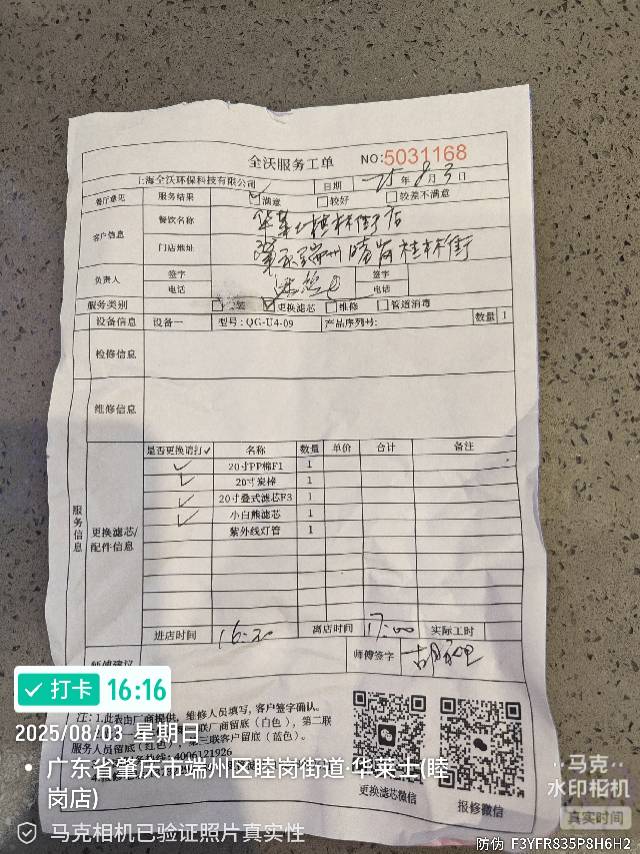 全沃服务工单 NO:5031168
上海全沃环保科技有限公司 日期 25年8月3日
餐厅意见 服务结果 ✓满意 较好 较差不满意
客户信息 餐饮名称 华莱士桂林街店
门店地址 肇庆端州睦岗桂林街
负责人 签字 签字
电话 电话
服务类别 ✓更换滤芯 维修 管道消毒
设备信息 设备一 型号:QG-U4-09 产品序列号: 数量 1
检修信息
维修信息
服务信息
更换滤芯/配件信息
是否更换请打✓ 名称 数量 单价 合计 备注
✓ 20寸PP棉F1 1
✓ 20寸炭棒 1
✓ 20寸叠式滤芯F3 1
✓ 小白熊滤芯 1
紫外线灯管 1
进店时间 16:20 离店时间 17:00 实际工时
师傅建议 师傅签字
注:1.此表由厂商提供,维修人员填写,客户签字确认。
厂商留底(白色),第二联
服务人员留底(红色),第三联客户留底(蓝色)。
4006121926
更换滤芯微信
报修微信
打卡 16:16
2025/08/03 星期日
广东省肇庆市端州区睦岗街道·华莱士(睦
岗店)
马克相机已验证照片真实性
马克
水印相机
真实时间
防伪 F3YFR835P8H6H2